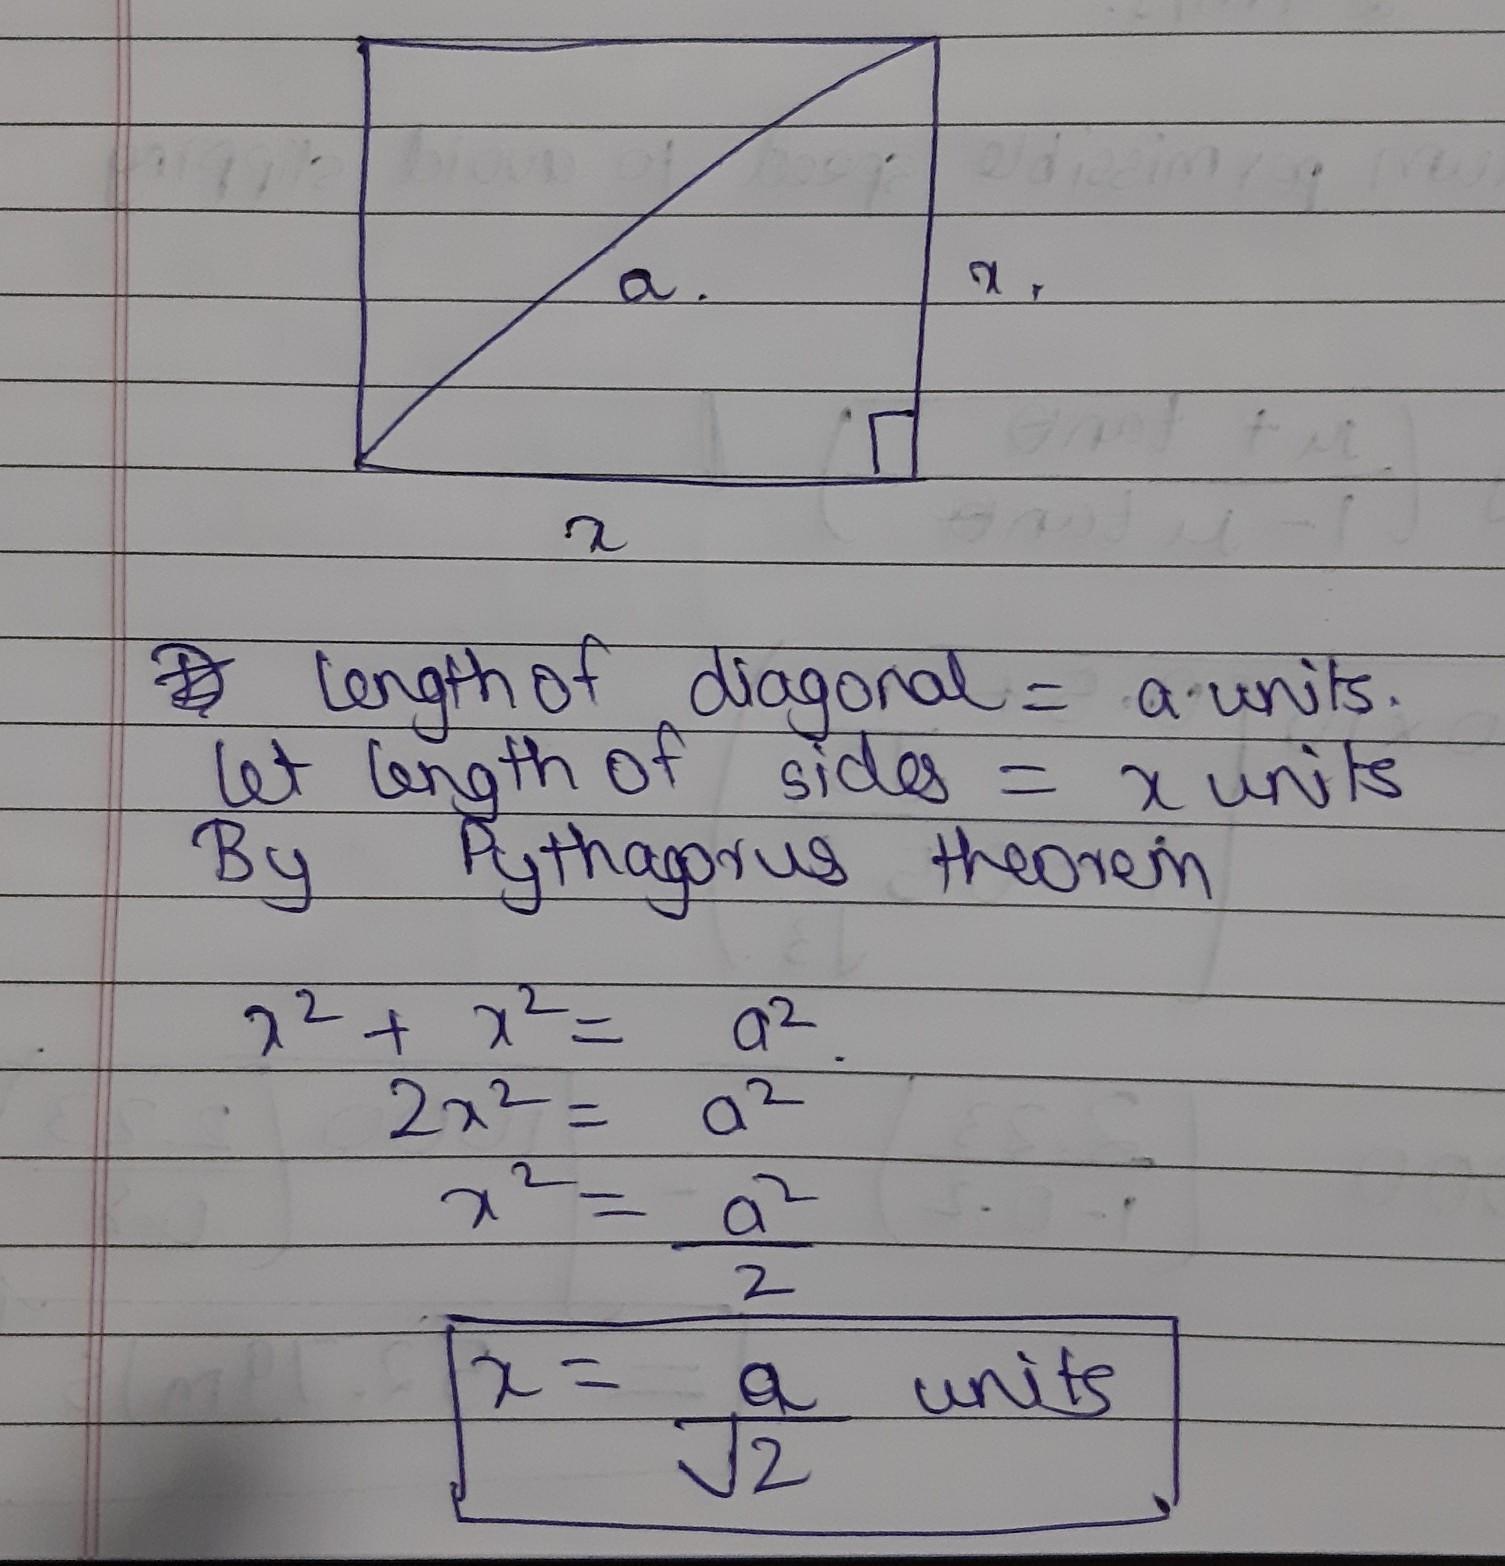 a.
x,
x
length of diagonal = a units.
let length of sides = x units
By Pythagorus theorem
x² + x² = a².
2x² = a²
x² = a²
2
x = a units
√2